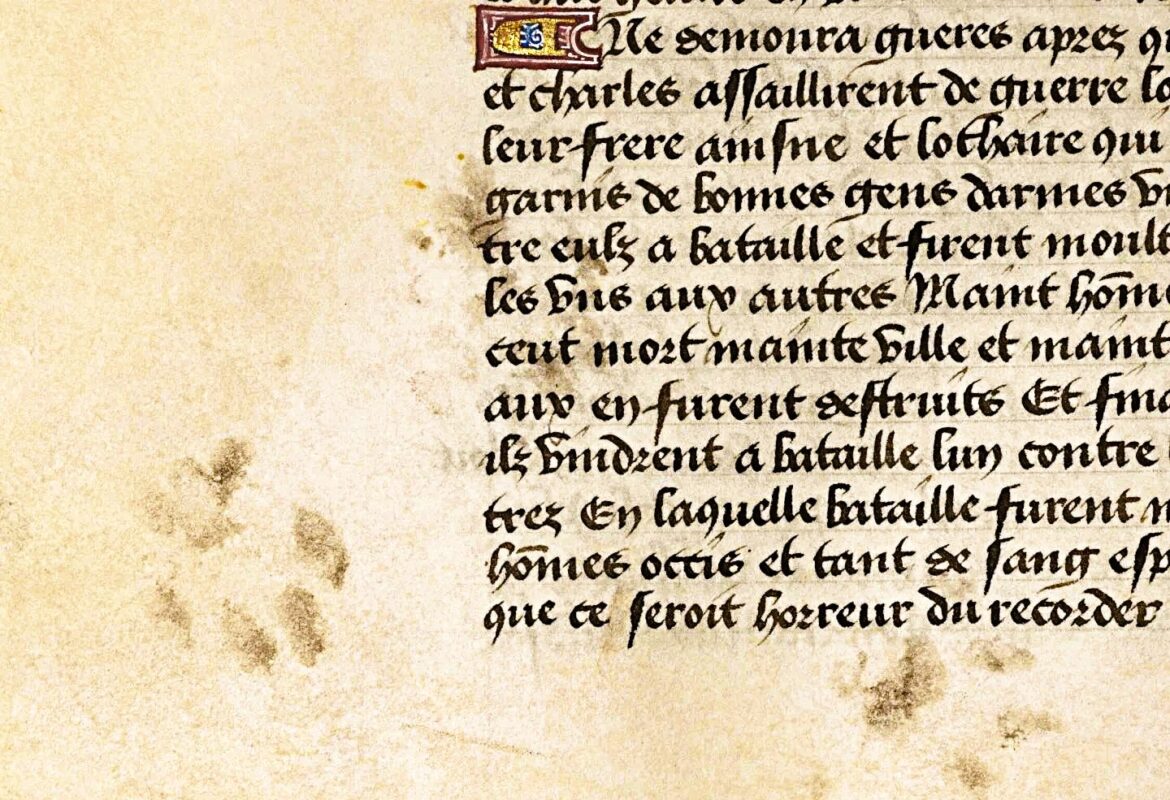 Ne demoura gueres aprez
et charles assaillirent de guerre
leur frere ainsne et lothaire qui
garnis de bonnes gens darmes
tre eulz a bataille et firent moult
les vns aux autres Maint hom̄e
ceut mort mainte ville et maint
aux en furent destruits Et
ilz vindrent a bataille lun contre
trez En laquelle bataille furent
hom̄es occis et tant de sang esp
que ce seroit horreur du recorder